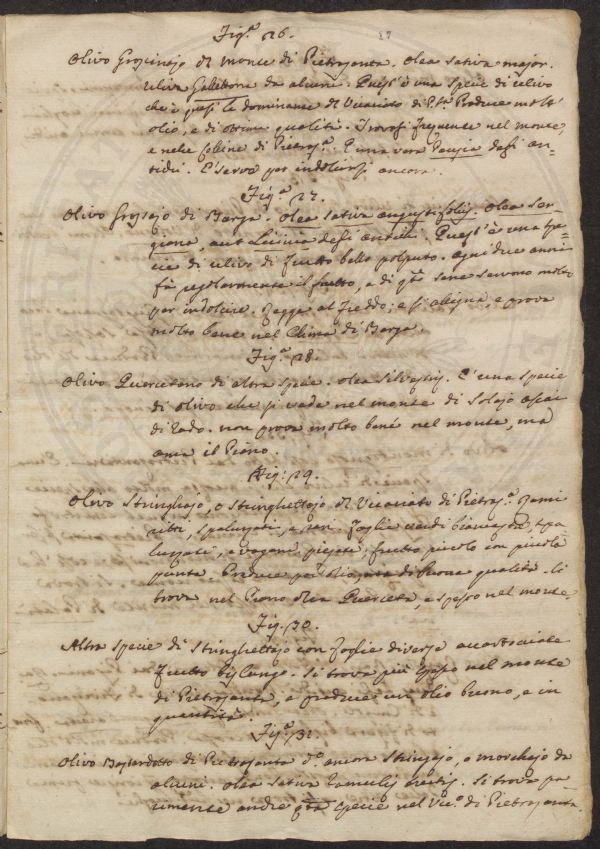 Fig.ª 26.
Olivo Grossinajo del monte di Pietrasanta. Olea sativa major.
Uliva Gallettona da alcuni. Quest'è una specie di ulivo
che è quasi la dominante del Vicariato di P.ta Produce molt'
olio, e di ottima qualità. Trovasi frequente nel monte,
e nelle colline di Pietras.ª È una vera Pausia degli an-
tichi. E' serve per indolcirsi ancora.
Fig.ª 27.
Olivo Grossajo di Barga. Olea sativa angustifolij. Olea Ser-
giana, aut Licinia degli antichi. Quest'è una spe-
cie di ulivo di frutto bello polputo. Ogni due anni
fà regolarmente il frutto, e di qta sene servono molto
per indolcire. Regge al freddo, e si alligna, e prova
molto bene nel Clima di Barga.
Fig.ª 28.
Olivo Quercetano di altra specie. Olea Silvestris. E' una specie
di olivo che si vede nel monte di Solajo assai
di rado. non prova molto bene nel monte, ma
ama il Piano.
Fig: 29.
Olivo Stringhajo, o Stringhettajo del Vicariato di Pietras.ª rami
ritti, e rari. Foglie verdi biancastre,
frutto piccolo con piccola
punta. Produce olio, ma di buona qualità. Si
trova nel Piano Querceta, e spesso nel monte.
Fig. 30.
Altra specie di Stringhettajo con foglie diverse accartociate
frutto bislungo. Si trova più spesso nel monte
di Pietrasanta, e produce un olio buono, e in
quantità.
Fig.ª 31.
Olivo Bastardotto di Pietrasanta d.º ancora Stringajo, o morchajo da
alcuni. Olea sativa Si trova pa-
rimente anche qta specie nel Vic.º di Pietrasanta.